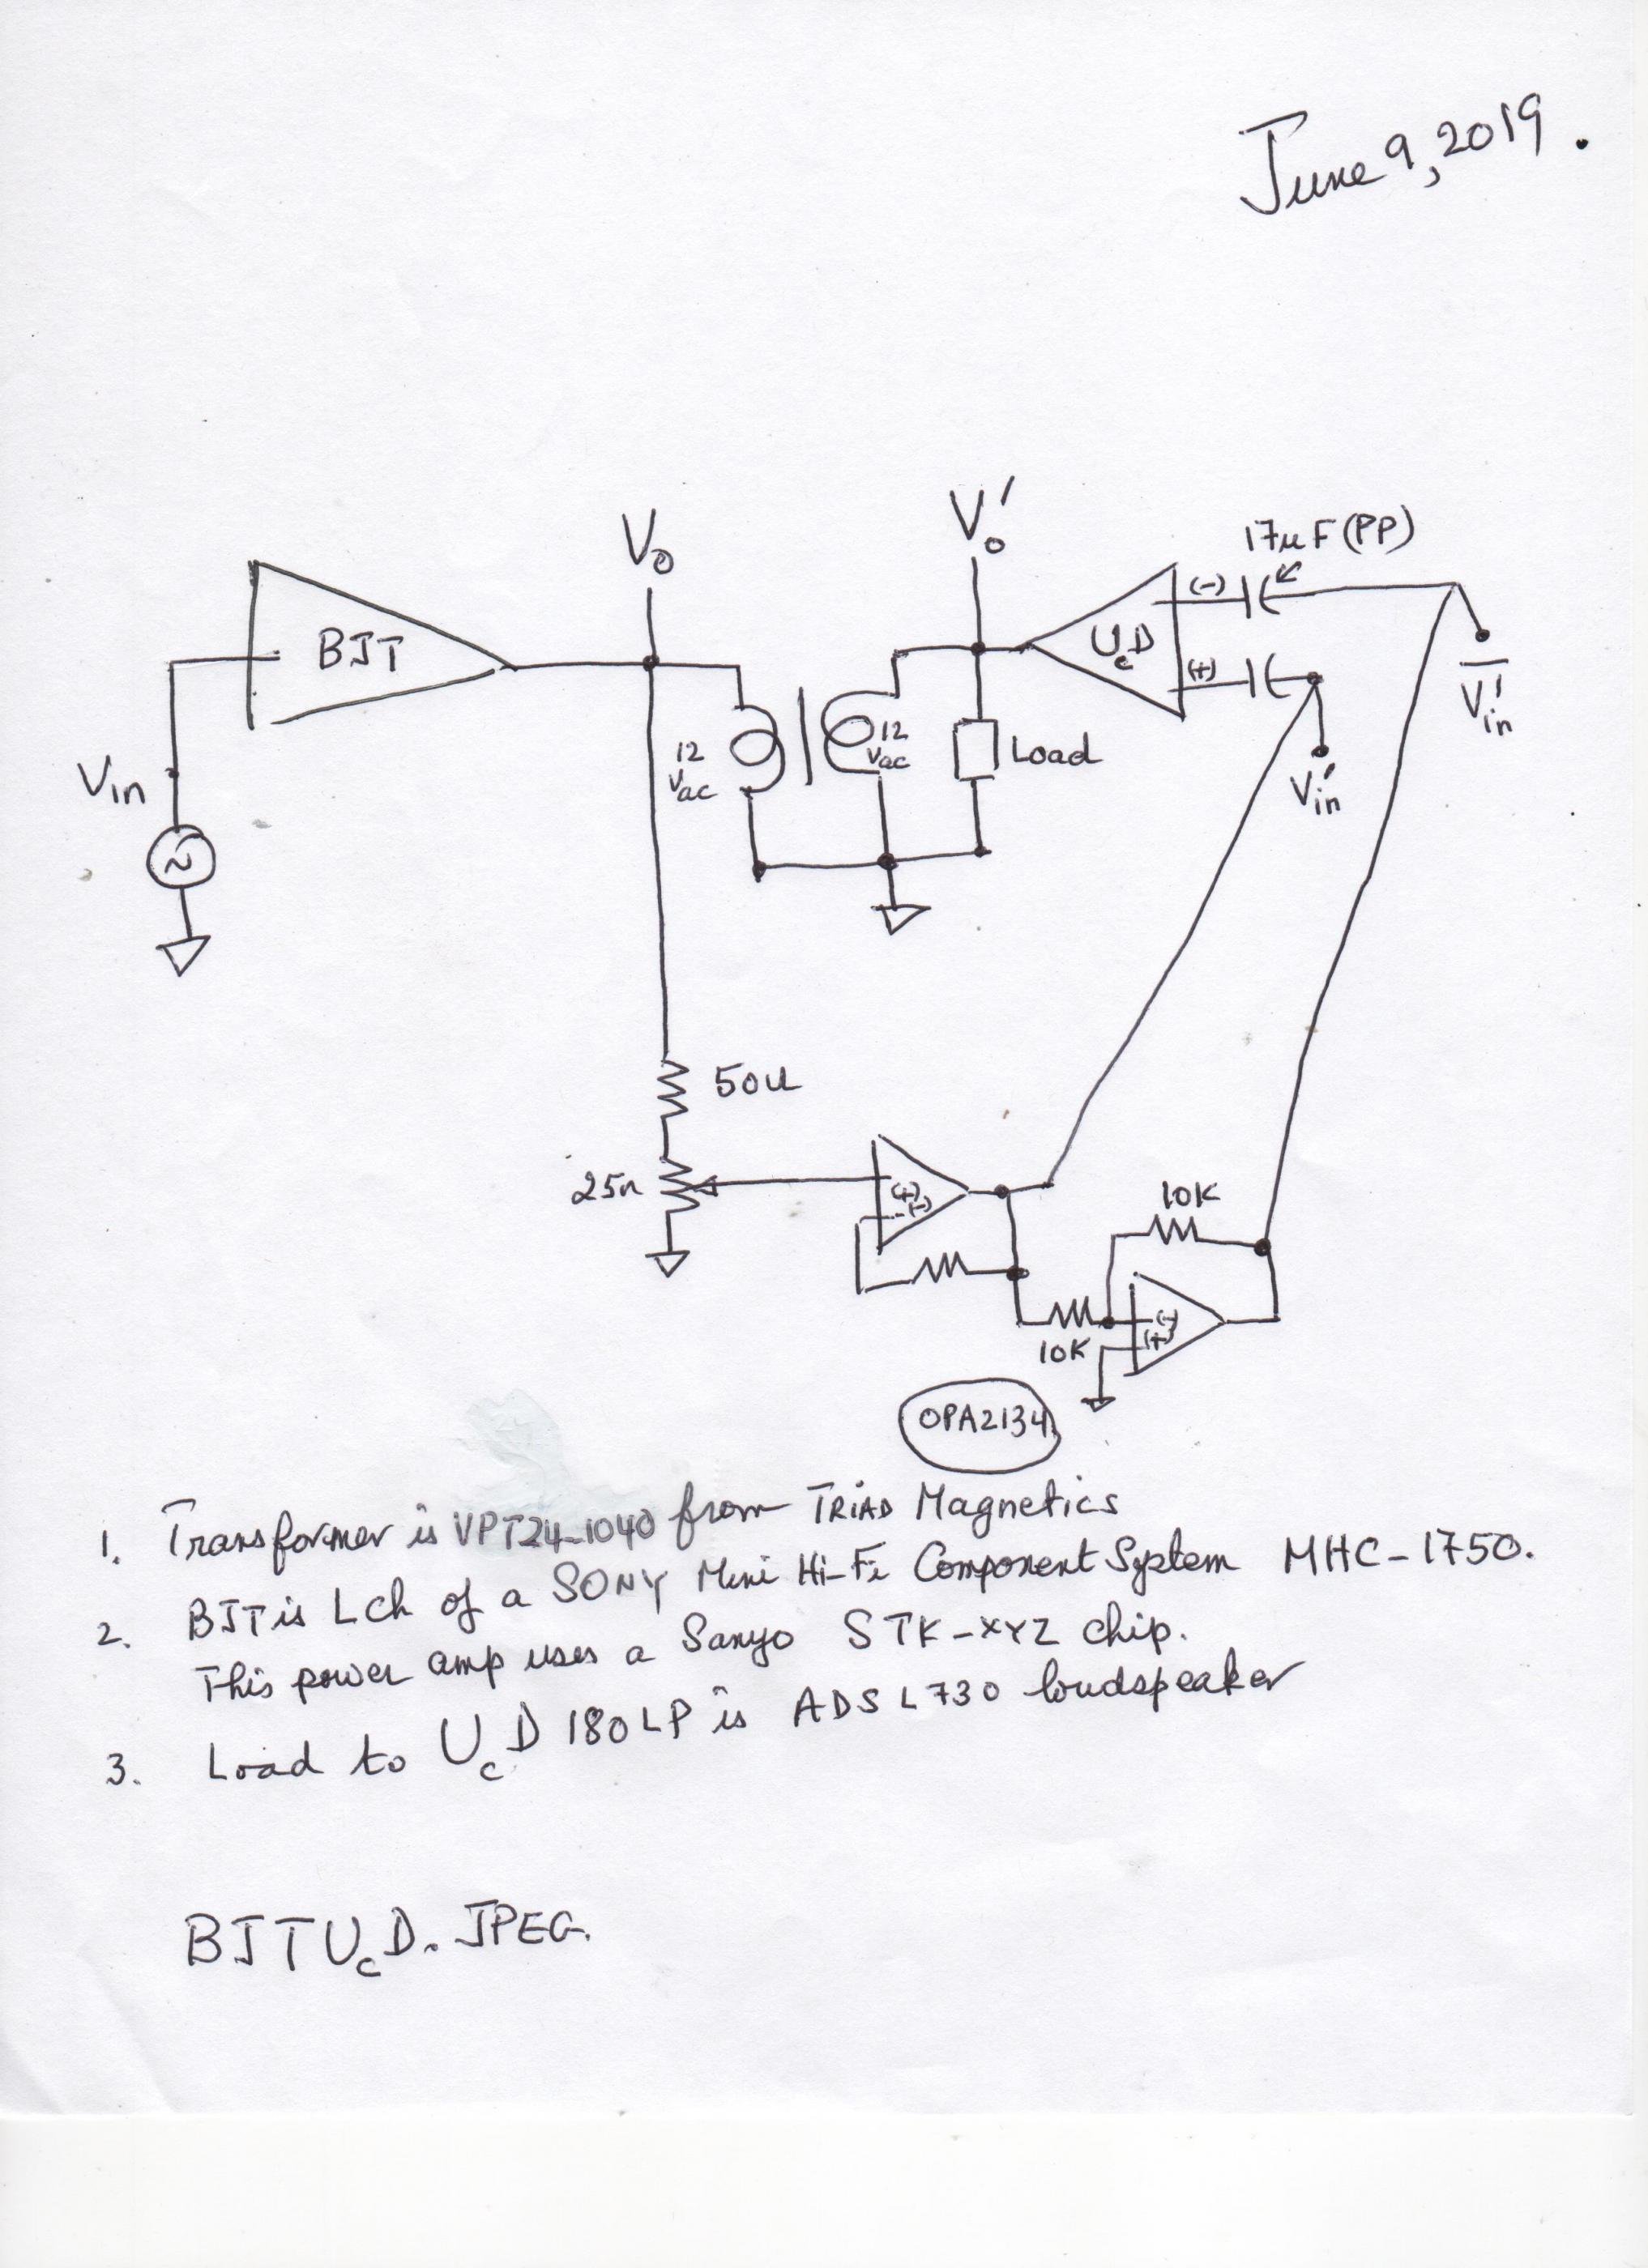 June 9, 2019.
Vo
Vo'
17µF (PP)
BJT
UcD
(-)
(+)
12
Vac
12
Vac
Load
Vin
Vin'
Vin'
50Ω
25Ω
(+)
(-)
10K
10K
(-)
(+)
OPA2134
1. Transformer is VPT24-1040 from TRIAD Magnetics
2. BJT is Lch of a SONY Mini Hi-Fi Component System MHC-1750.
This power amp uses a Sanyo STK-XYZ chip.
3. Load to UcD 180LP is ADS L730 loudspeaker
BJTUcD.JPEG.